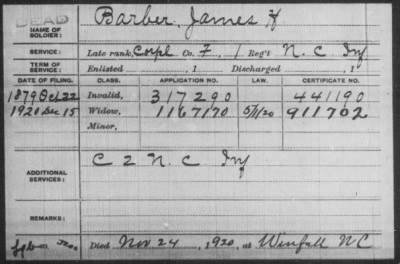 DEAD
NAME OF SOLDIER: Barber, James H
SERVICE: Late rank, Corpl Co. F, 1 Reg't N. C. Inf
TERM OF SERVICE: Enlisted , 1 Discharged , 1
DATE OF FILING. CLASS. APPLICATION NO. LAW. CERTIFICATE NO.
1879 Oct 22 Invalid, 317290 441190
1920 Dec 15 Widow, 1167170 5/1/20 911702
Minor,
C 2 N. C Inf
ADDITIONAL SERVICES:
REMARKS:
Died Nov 24 , 1920, at Winfall NC